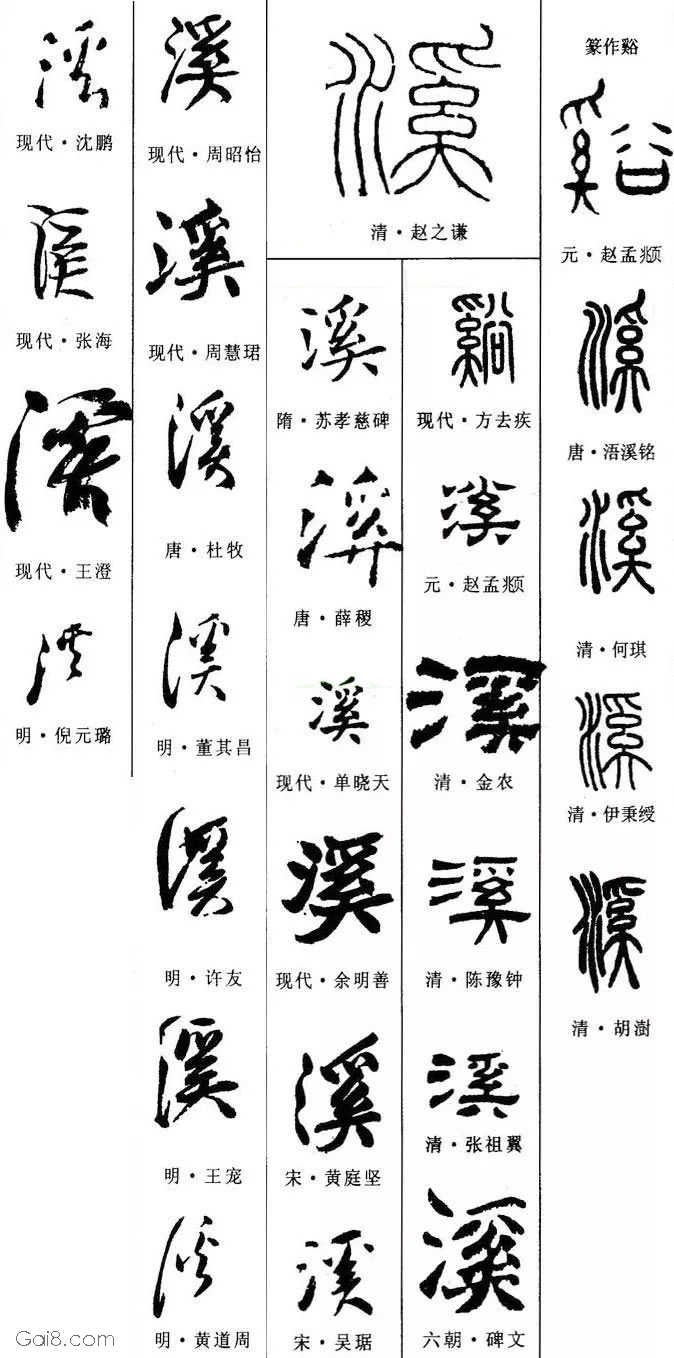 篆作谿
谿
元·赵孟𫖯
溪
唐·浯溪铭
溪
清·何琪
溪
清·伊秉绶
溪
清·胡澍
溪
清·赵之谦
谿
现代·方去疾
溪
元·赵孟𫖯
溪
清·金农
溪
清·陈豫钟
溪
清·张祖翼
溪
六朝·碑文
溪
隋·苏孝慈碑
溪
唐·薛稷
溪
现代·单晓天
溪
现代·余明善
溪
宋·黄庭坚
溪
宋·吴琚
溪
现代·周昭怡
溪
现代·周慧珺
溪
唐·杜牧
溪
明·董其昌
溪
明·许友
溪
明·王宠
溪
明·黄道周
溪
现代·沈鹏
溪
现代·张海
溪
现代·王澄
溪
明·倪元璐
Gai8.com